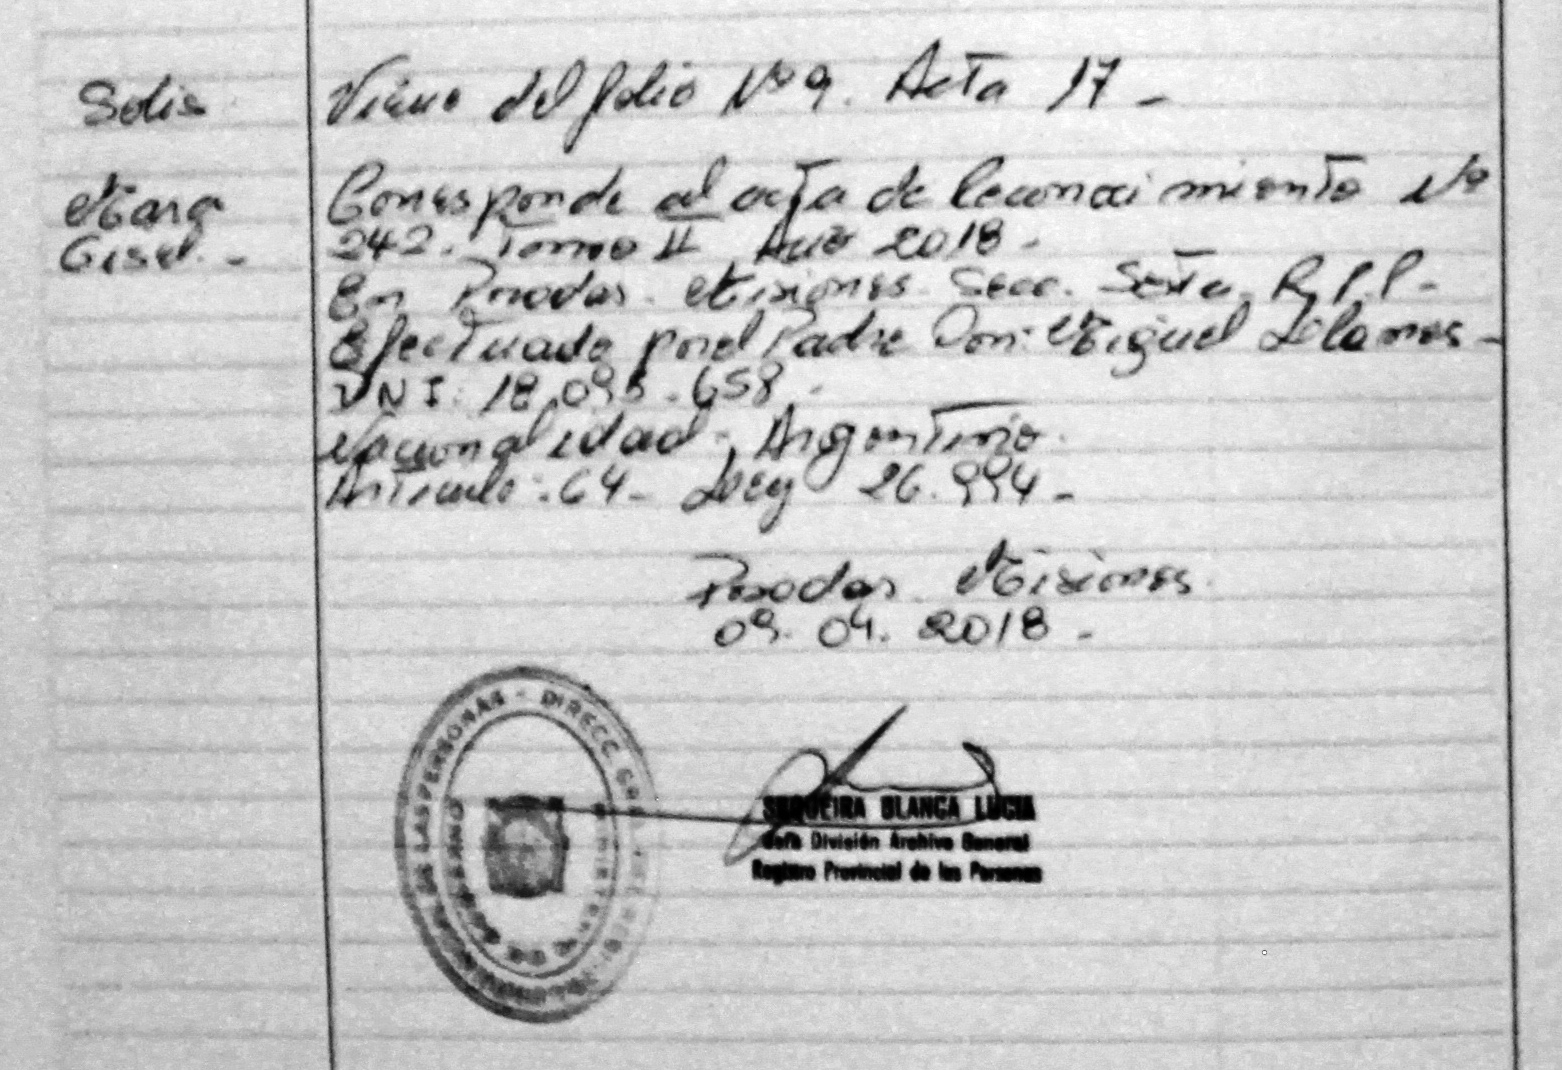 Solis
Viene del folio Nº 9. Acta 17 -
Mara
Gisel. -
Corresponde al acta de Reconocimiento Nº
242. Tomo II Año 2018 -
En Posadas. Misiones. Secc. Sexta R.P.P. -
Efectuado por el Padre Don: Miguel Llanes -
DNI: 18.095.658 -
Nacionalidad - Argentino.
Artículo: 64 - Ley 26.994 -
Posadas Misiones.
09. 04. 2018 -
DE LAS PERSONAS - DIRECC. GRAL.
MINISTERIO DE GOBIERNO
SEQUEIRA BLANCA LUCIA
Jefa División Archivo General
Registro Provincial de las Personas